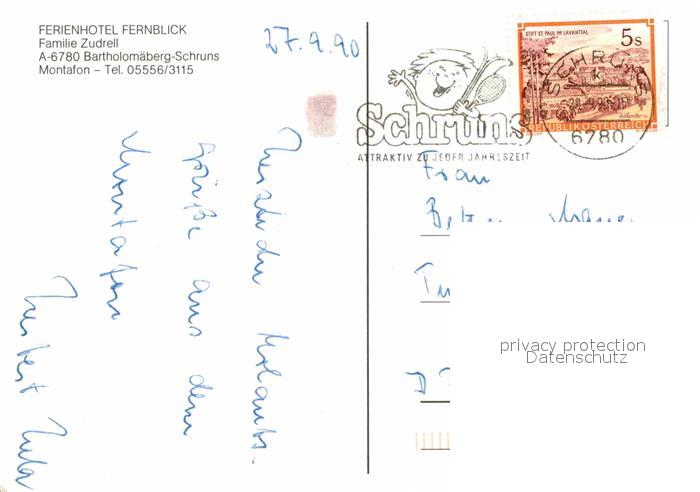 FERIENHOTEL FERNBLICK
Familie Zudrell
A-6780 Bartholomäberg-Schruns
Montafon – Tel. 05556/3115
27.9.90
Herzliche Urlaubs-
grüße aus dem
Montafon
Schruns
ATTRAKTIV ZU JEDER JAHRESZEIT
STIFT ST. PAUL IM LAVANTTAL
5 S
REPUBLIK ÖSTERREICH
SCHRUNS
6780
Frau
privacy protection
Datenschutz